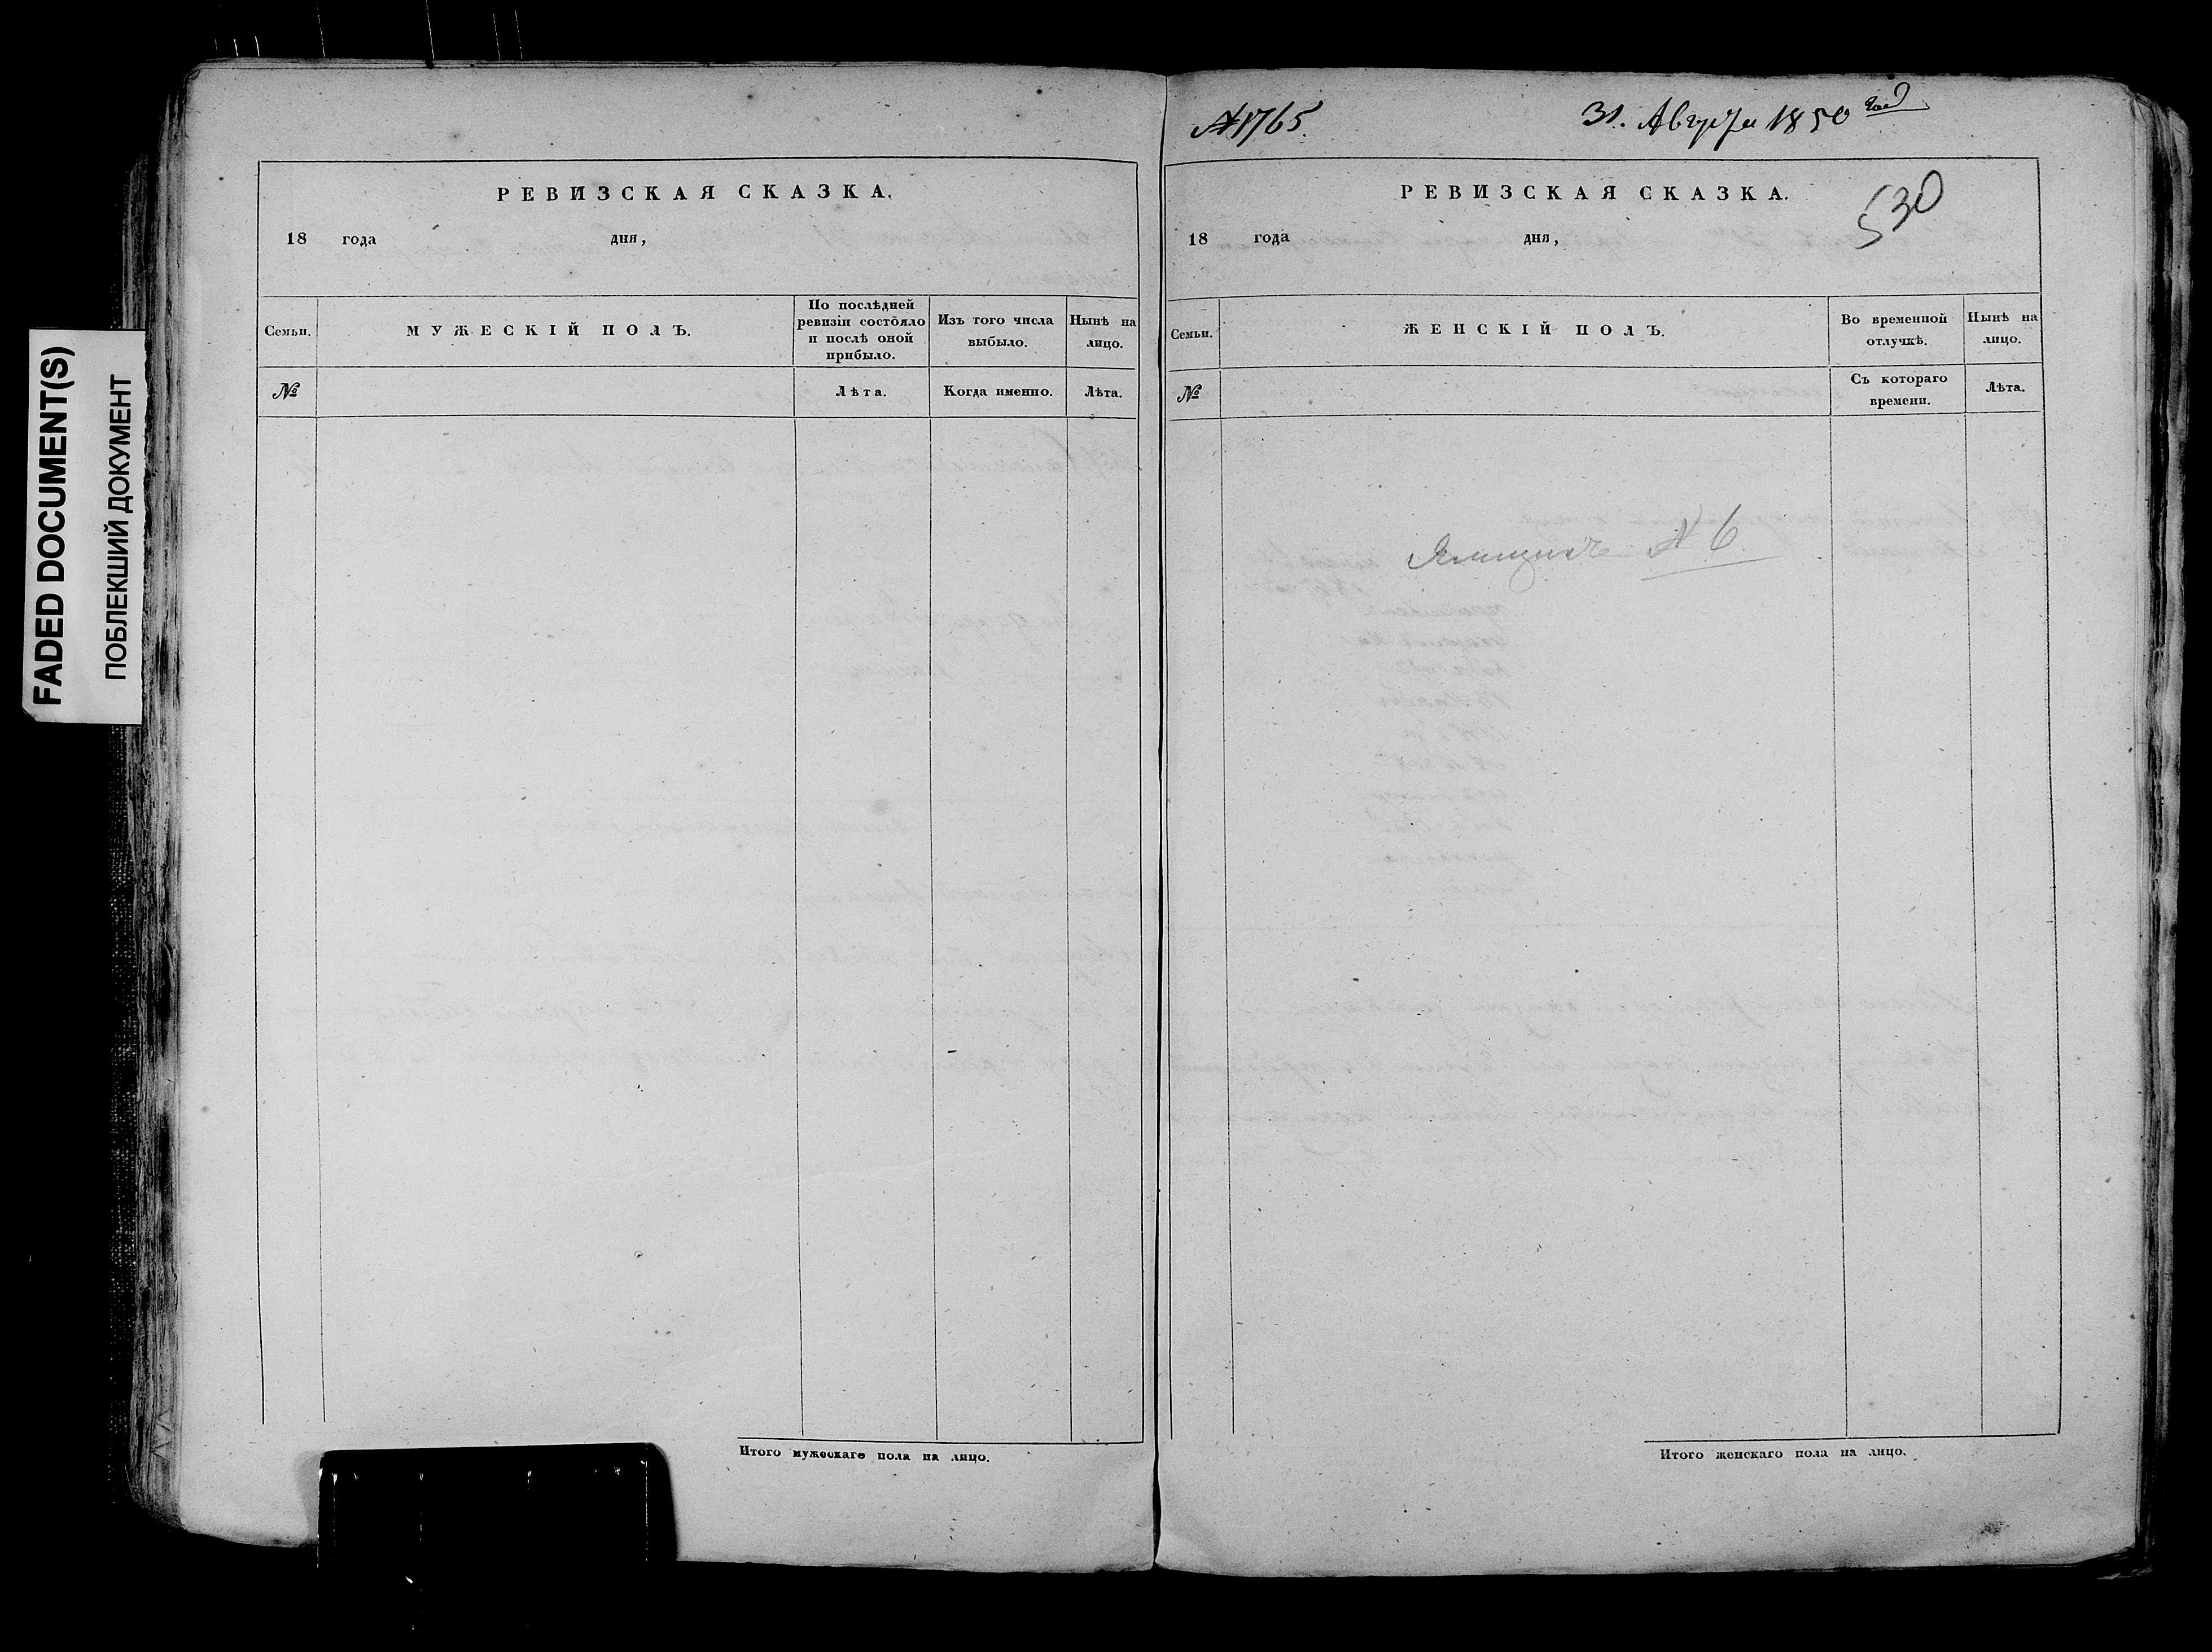 FADED DOCUMENT(S)
ПОБЛЕКШИЙ ДОКУМЕНТ
РЕВИЗСКАЯ СКАЗКА.
18 года дня,
Семьи.
МУЖЕСКІЙ ПОЛЪ.
По послѣдней
ревизіи состояло
и послѣ оной
прибыло.
Изъ того числа
выбыло.
Нынѣ на
лицо.
№
Лѣта.
Когда именно.
Лѣта.
Итого мужескаго пола на лицо.
№ 1765.
31. Августа 1850 года
530
РЕВИЗСКАЯ СКАЗКА.
18 года дня,
Семьи.
ЖЕНСКІЙ ПОЛЪ.
Во временной
отлучкѣ.
Нынѣ на
лицо.
№
Съ котораго
времени.
Лѣта.
№ 6
Итого женскаго пола на лицо.